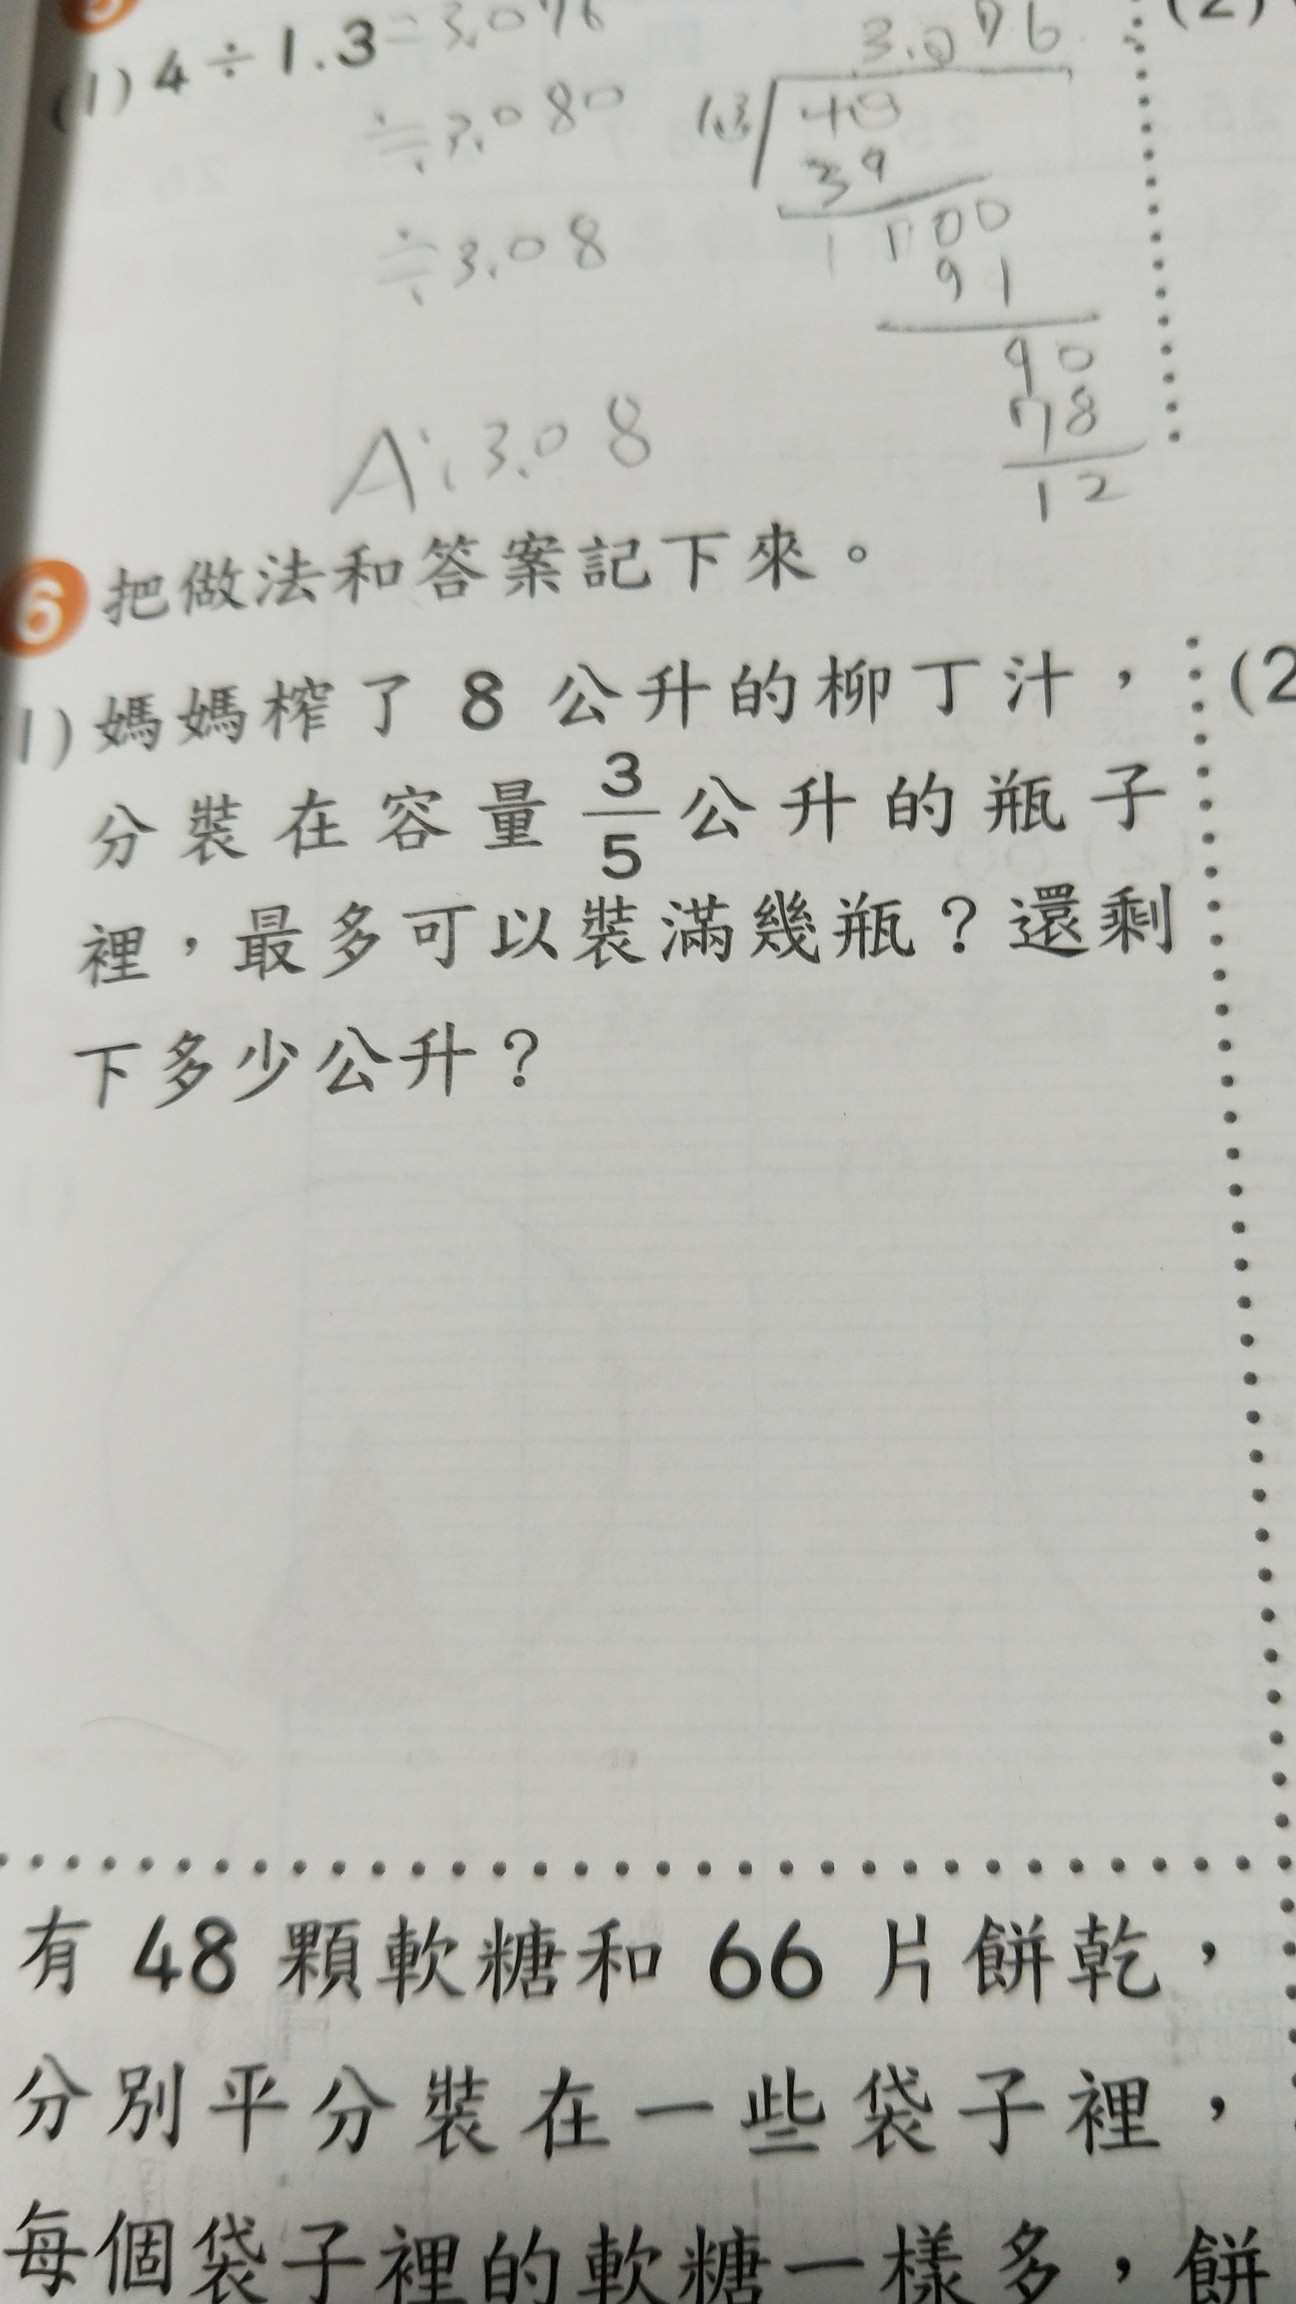 5 (2)
(1) 4÷1.3=3.076
≒3.080
≒3.08
A:3.08
3.076
1.3
40
39
100
91
90
78
12
6 把做法和答案記下來。
1) 媽媽榨了 8 公升的柳丁汁， (2
分裝在容量 3/5 公升的瓶子
裡，最多可以裝滿幾瓶？還剩
下多少公升？
有 48 顆軟糖和 66 片餅乾，
分別平分裝在一些袋子裡，
每個袋子裡的軟糖一樣多，餅